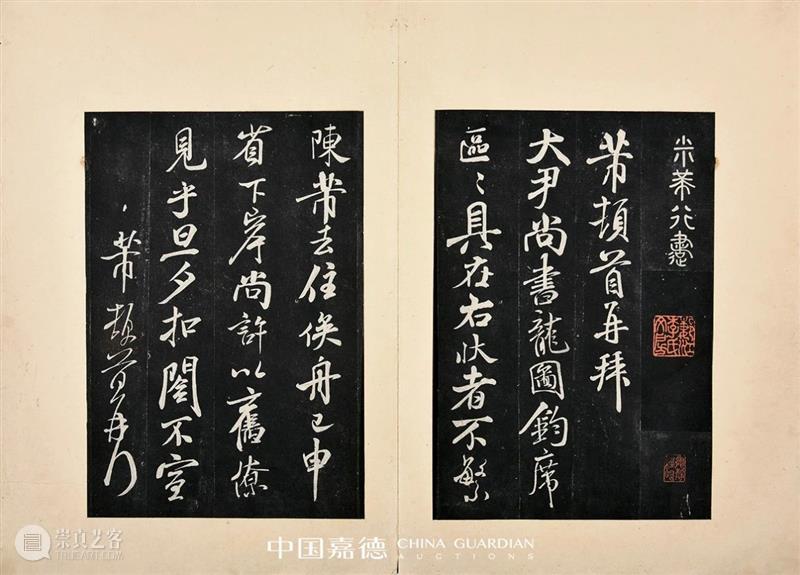 米芾行書
芾頓首再拜
大尹尚書龍圖鈞席
區〻具在右狀者不繁
陳芾去住俟舟已申
省下岸尚許以舊僚
見乎旦夕扣閤不宣
芾頓首再拜
崇真艺客
TRUEART.COM
中国嘉德
CHINA GUARDIAN
AUCTIONS